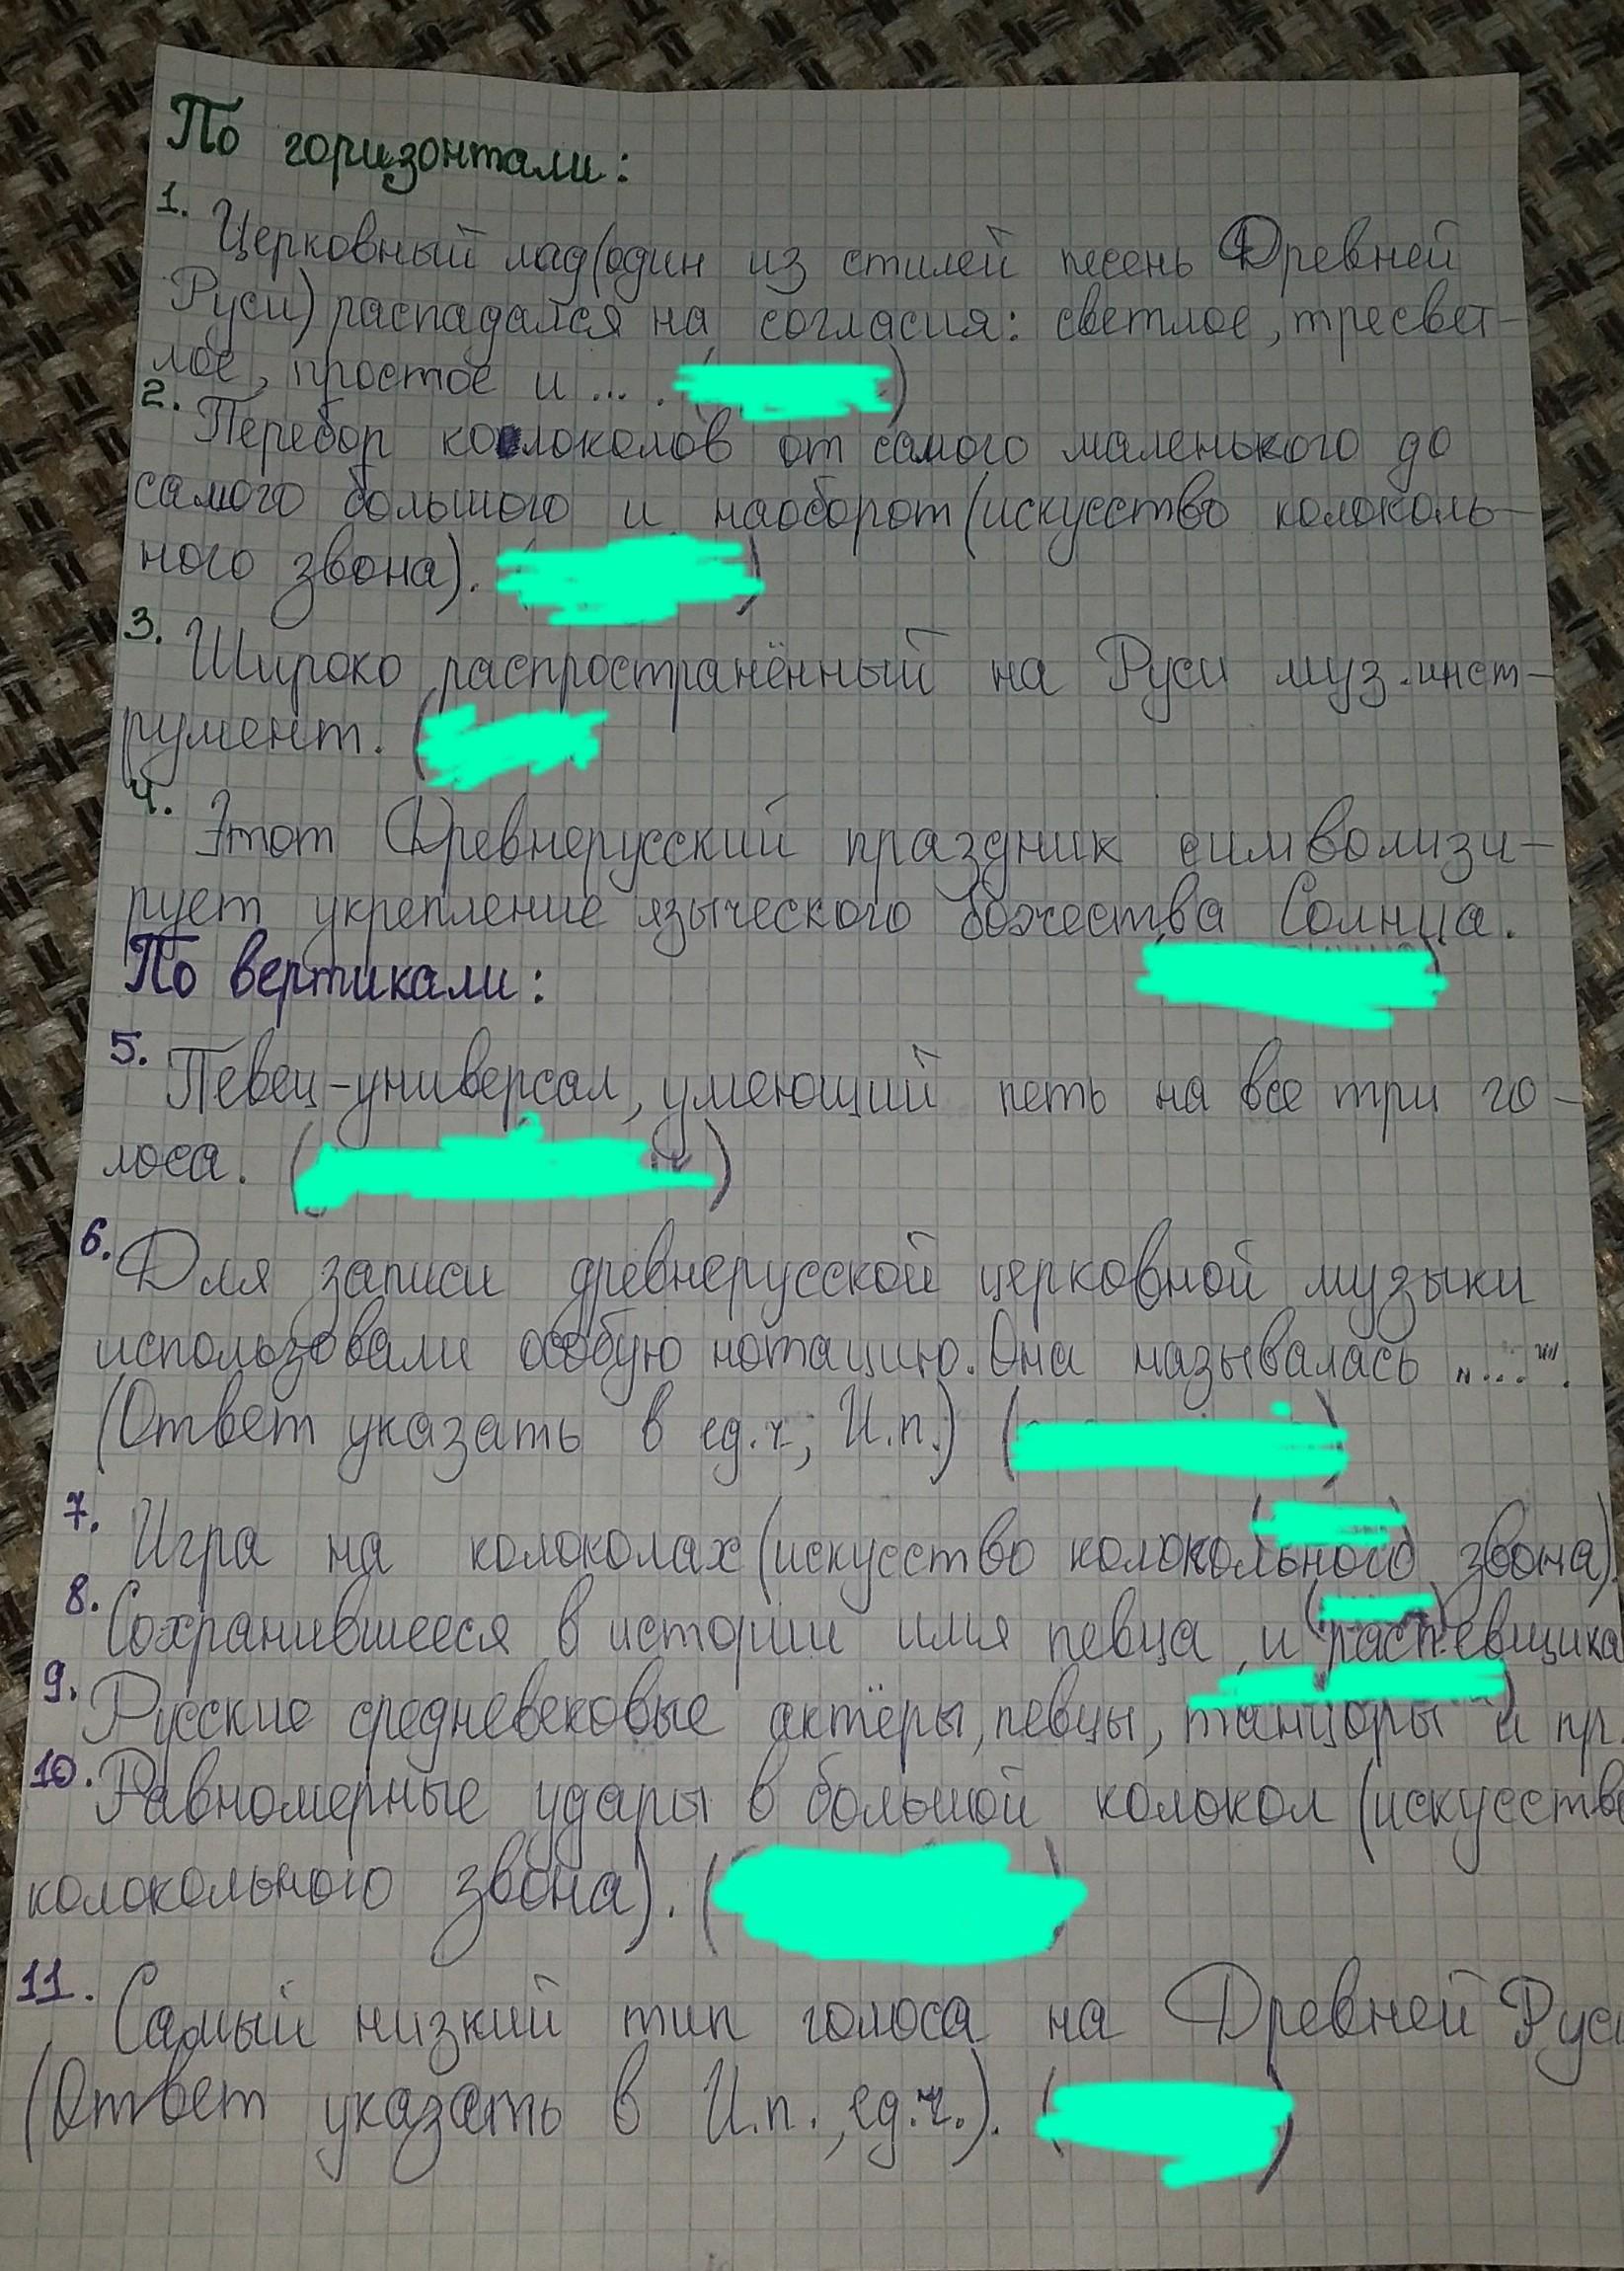 По горизонтали:
1. Церковный лад(один из стилей песень Древней
Руси) распадался на согласия: светлое, тресвет-
лое, простое и ... . ( )
2. Перебор колоколов от самого маленького до
самого большого и наоборот(искусство колоколь-
ного звона). ( )
3. Широко распространённый на Руси муз.инст-
румент. (
4. Этот Древнерусский праздник символизи-
рует укрепление языческого божества Солнца.
По вертикали:
5. Певец-универсал, умеющий петь на все три го-
лоса. ( )
6. Для записи древнерусской церковной музыки
использовали особую нотацию. Она называлась „...".
(Ответ указать в ед.ч; И.п.) ( )
7. Игра на колоколах(искусство колокольного звона).
8. Сохранившееся в истории имя певца и распевщика
9. Русские средневековые актёры, певцы, танцоры и пр.
10. Равномерные удары в большой колокол (искусство
колокольного звона). ( )
11. Самый низкий тип голоса на Древней Руси
(Ответ указать в И.п., ед.ч.). ( )